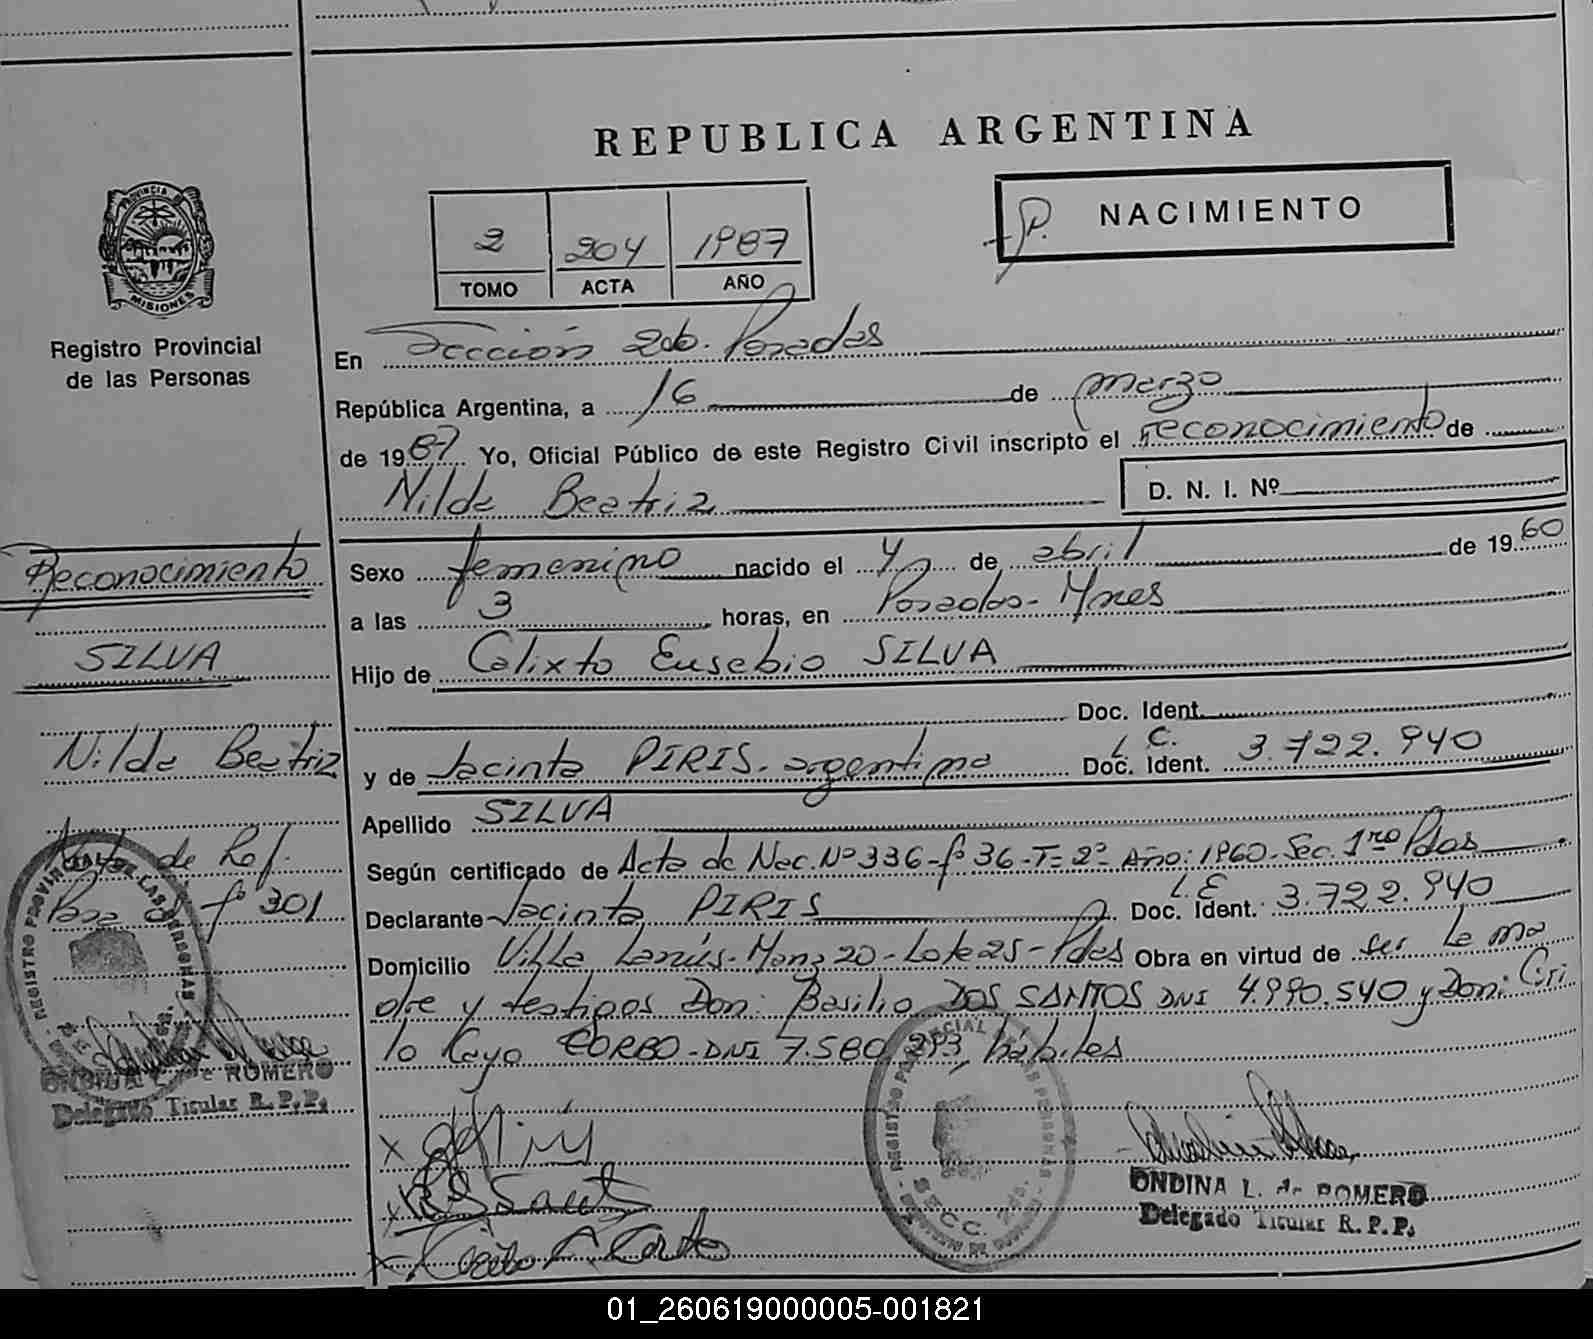 REPUBLICA ARGENTINA
PROVINCIA DE
MISIONES
Registro Provincial
de las Personas
2 204 1987
TOMO ACTA AÑO
P. NACIMIENTO
En Sección 2da. Posadas
República Argentina, a 16 de marzo
de 1987 Yo, Oficial Público de este Registro Civil inscripto el reconocimiento de
Nilda Beatriz
D. N. I. Nº
Sexo femenino nacido el 4 de abril de 1960
a las 3 horas, en Posadas-Mnes
Hijo de Calixto Eusebio SILVA
Doc. Ident.
y de Jacinta PIRIS. argentina L. C. Doc. Ident. 3.722.940
Apellido SILVA
Según certificado de Acta de Nac. Nº 336-fº 36-T= 2º Año: 1960-Sec. 1ro Pdas
Declarante Jacinta PIRIS L.E Doc. Ident. 3.722.940
Domicilio Villa Lanús-Manz 20-Lote 25-Pdas Obra en virtud de ser la ma
dre y testigos Don: Basilio DOS SANTOS DNI 4.990.540 y Don: Ciri
lo Cayo CORBO-DNI 7.580.293 hábiles
Reconocimiento
SILVA
Nilda Beatriz
Nota de Ref.
Pasa al fº 301
REGISTRO PROVINCIAL DE LAS PERSONAS
ONDINA L. de ROMERO
Delegado Titular R.P.P.
REGISTRO PROVINCIAL DE LAS PERSONAS
SECC. 2da.
ONDINA L. de ROMERO
Delegado Titular R.P.P.
01_260619000005-001821